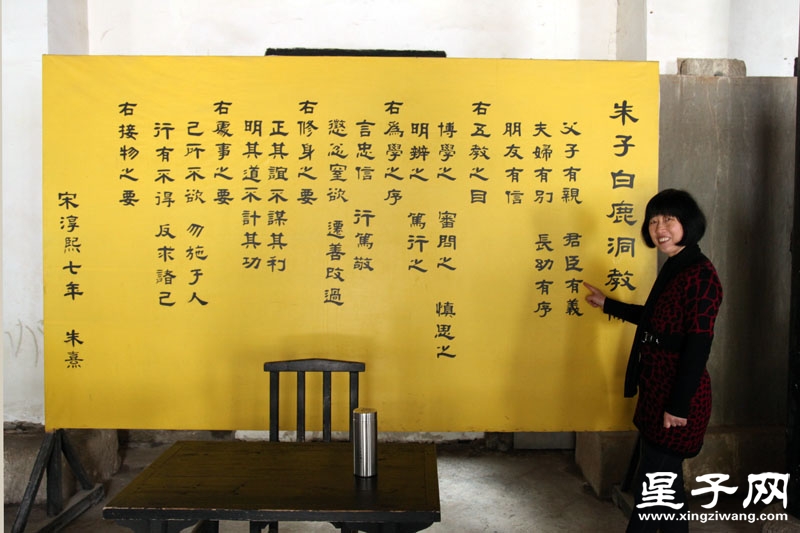 朱子白鹿洞教
父子有親 君臣有義
夫婦有別 長幼有序
朋友有信
右五教之目
博學之 審問之 慎思之
明辨之 篤行之
右爲學之序
言忠信 行篤敬
懲忿窒欲 遷善改過
右修身之要
正其誼不謀其利
明其道不計其功
右處事之要
己所不欲 勿施于人
行有不得 反求諸己
右接物之要
宋淳熙七年 朱熹
星子网
www.xingziwang.com